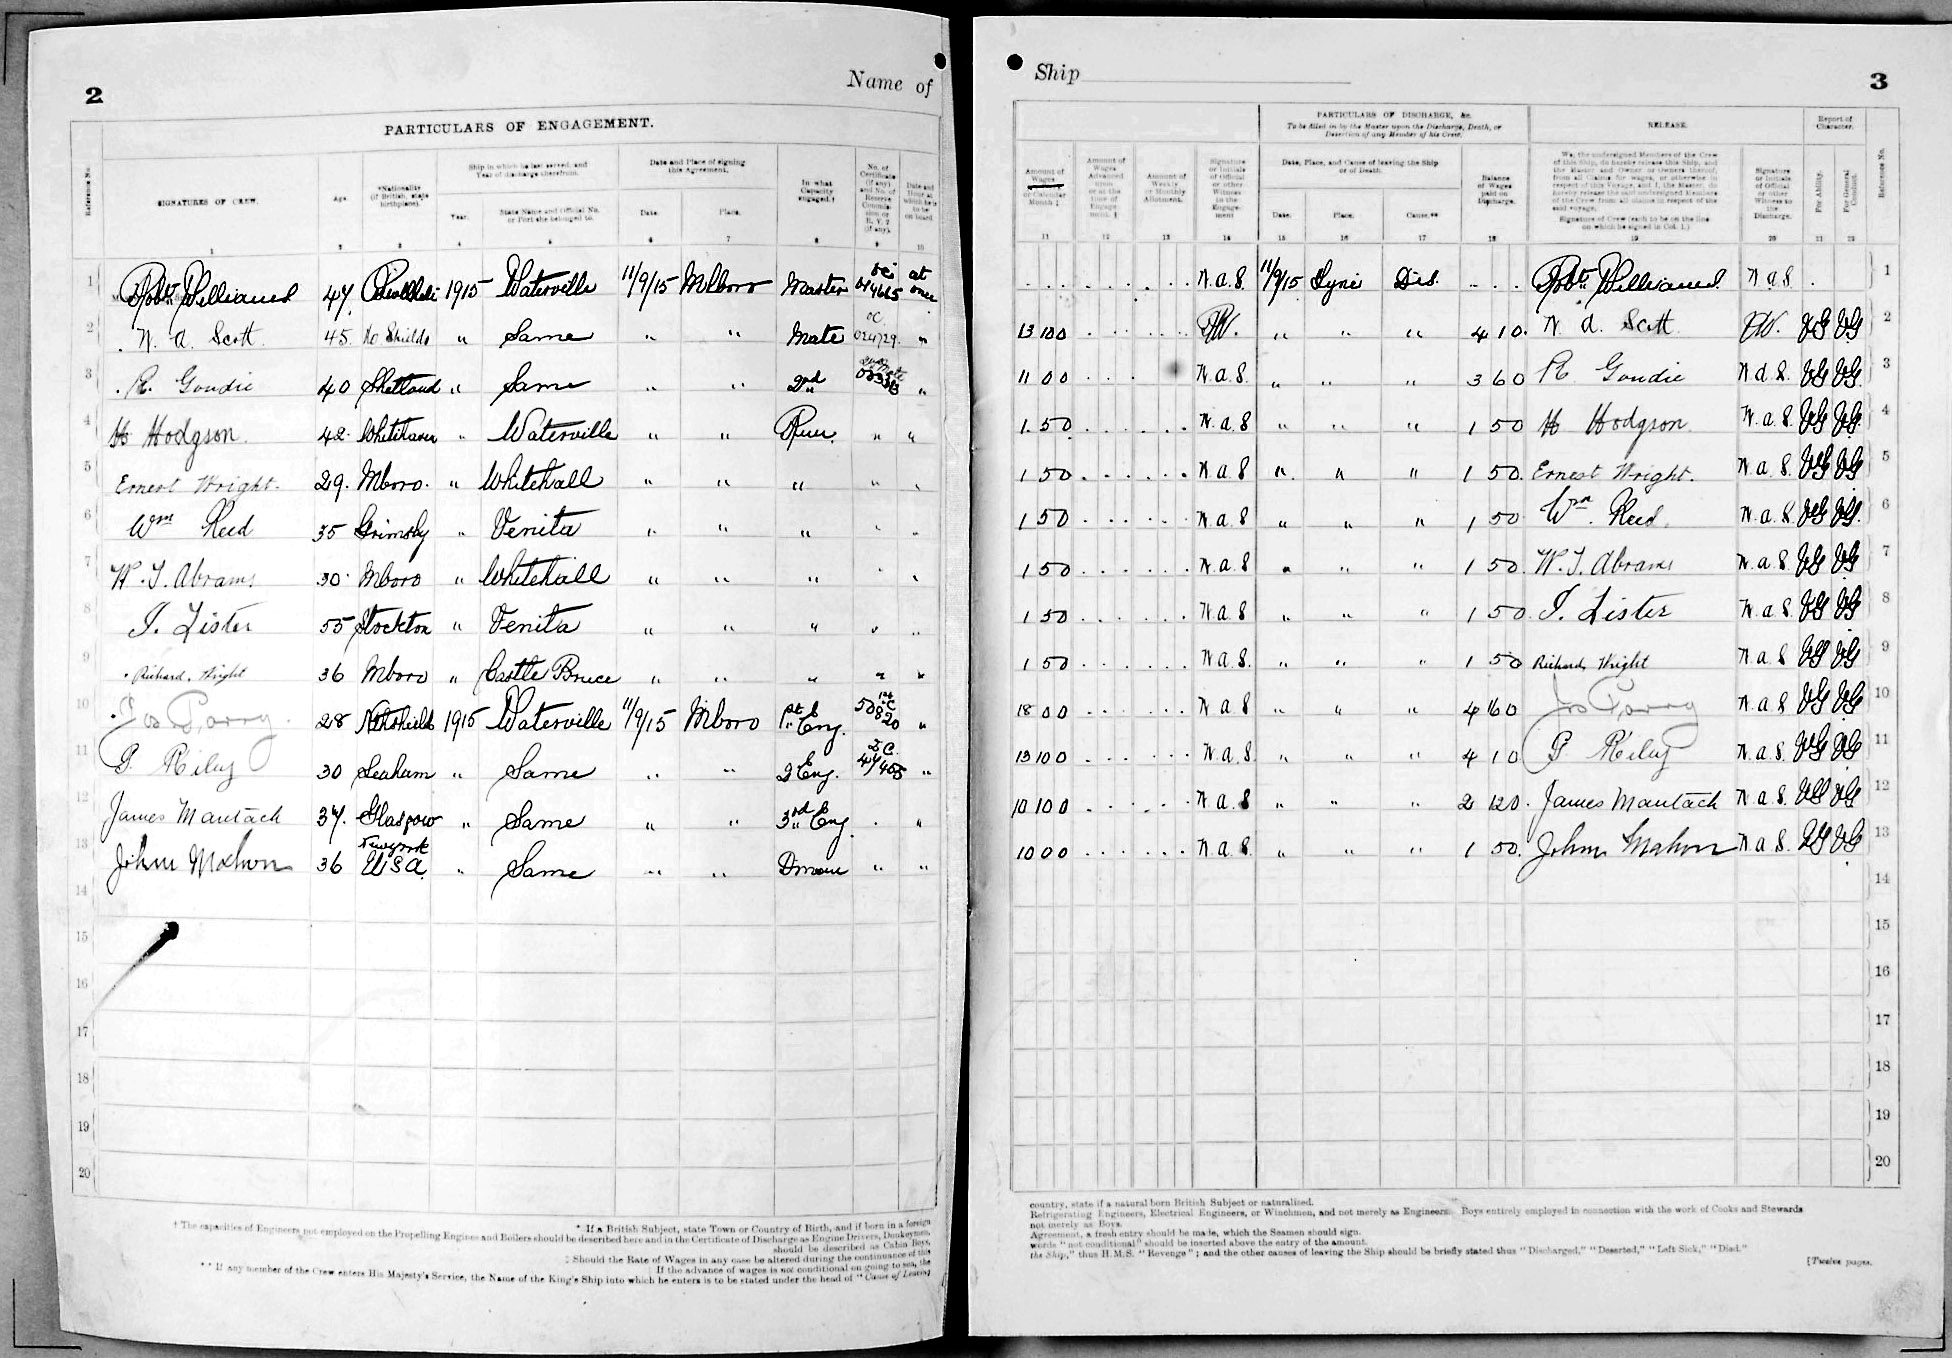 2
Name of
PARTICULARS OF ENGAGEMENT.
Reference No.
SIGNATURES OF CREW.
Age.
*Nationality (if British, state birthplace).
Ship in which he last served, and Year of discharge therefrom.
Year.
State Name and Official No. or Port she belonged to.
Date and Place of signing this Agreement.
Date.
Place.
In what Capacity engaged.†
No. of Certificate (if any) and No. of Reserve Commission or R.V.2 (if any).
Date and Hour at which he is to be on board
1 2 3 4 5 6 7 8 9 10
1 Robt Williams 47 1915 Waterville 11/9/15 Mbboro Master at once
2 W. A. Scott 45 No Shields " Same " " Mate 024729 "
3 R. Goudie 40 Shetland " Same " " 2nd "
4 H Hodgson 42 Whitehaven " Waterville " " " "
5 Ernest Wright 29 Mboro " Whitehall " " " " "
6 Wm Reed 35 Grimsby " Venita " " " " "
7 W. T. Abrams 30 Mboro " Whitehall " " " " "
8 T. Lister 55 Stockton " Venita " " " " "
9 Richard Wright 36 Mboro " Castle Bruce " " " " "
10 Jos Parry 28 Nth Shields 1915 Waterville 11/9/15 Mboro 1st Eng. 1st C 50820 "
11 P. Riley 30 Seaham " Same " " 2 Eng. 2 C. "
12 James Mantach 37 Glasgow " Same " " 3rd Eng. . "
13 John Mahon 36 New York USA " Same " " Dman " "
14
15
16
17
18
19
20
† The capacities of Engineers not employed on the Propelling Engines and Boilers should be described here and in the Certificate of Discharge as Engine Drivers, Donkeymen,
* If a British Subject, state Town or Country of Birth, and if born in a foreign
should be described as Cabin Boys,
‡ Should the Rate of Wages in any case be altered during the continuance of this
If the advance of wages is not conditional on going to sea, the
** If any member of the Crew enters His Majesty's Service, the Name of the King's Ship into which he enters is to be stated under the head of "Cause of Leaving
Ship
3
PARTICULARS OF DISCHARGE, &c.
To be filled in by the Master upon the Discharge, Death, or Desertion of any Member of his Crew.
RELEASE.
Report of Character.
Amount of Wages or Calendar Month ‡
Amount of Wages Advanced upon or at the time of Engagement. §
Amount of Weekly or Monthly Allotment.
Signature or Initials of Official or other Witness to the Engagement
Date, Place, and Cause of leaving the Ship or of Death.
Date.
Place.
Cause.**
Balance of Wages paid on Discharge.
We, the undersigned Members of the Crew of this Ship, do hereby release this Ship, and the Master and Owner or Owners thereof, from all Claims for wages, or otherwise in respect of this Voyage, and I, the Master, do hereby release the said undersigned Members of the Crew from all claims in respect of the said voyage.
Signature of Crew (each to be on the line on which he signed in Col. 1.)
Signature or Initials of Official or other Witness to the Discharge.
For Ability.
For General Conduct.
Reference No.
11 12 13 14 15 16 17 18 19 20 21 22
W.a.S. 11/9/15 Tyne Dis. Robt Williams W a S 1
13 10 0 " " " 4 1 0 W. A. Scott VG VG 2
11 0 0 W.a.S. " " " 3 6 0 R Goudie W a S. VG VG 3
1 5 0 W.a.S " " " 1 5 0 H Hodgson W.a.S. VG VG 4
1 5 0 W a S " " " 1 5 0 Ernest Wright. W.a.S. VG VG 5
1 5 0 W.a.S " " " 1 5 0 Wm Reed W.a.S. VG VG 6
1 5 0 W.a.S " " " 1 5 0 W.T. Abrams W.a.S. VG VG 7
1 5 0 W.a.S " " " 1 5 0 T. Lister W.a.S. VG VG 8
1 5 0 W a S. " " " 1 5 0 Richard Wright W.a.S VG VG 9
18 0 0 W a S " " " 4 16 0 Jos Parry W.a.S VG VG 10
13 10 0 W a S " " " 4 1 0 P Riley W.a.S. VG VG 11
10 10 0 W a S " " " 2 12 0 James Mantach W.a.S. VG VG 12
10 0 0 W a S " " " 1 5 0 John Mahon W a S. VG VG 13
14
15
16
17
18
19
20
country, state if a natural born British Subject or naturalised.
Refrigerating Engineers, Electrical Engineers, or Winchmen, and not merely as Engineers. Boys entirely employed in connection with the work of Cooks and Stewards
not merely as Boys.
Agreement, a fresh entry should be made, which the Seamen should sign.
words "not conditional" should be inserted above the entry of the amount.
the Ship," thus H.M.S. "Revenge"; and the other causes of leaving the Ship should be briefly stated thus "Discharged," "Deserted," "Left Sick," "Died."
[Twelve pages.